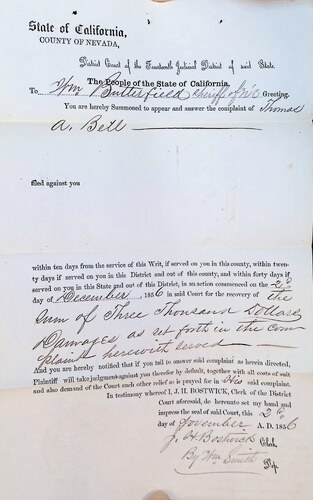 State of California,
COUNTY OF NEVADA,
District Court of the Fourteenth Judicial District of said State.
The People of the State of California.
To Wm Butterfield Sheriff of N.C. Greeting.
You are hereby Summoned to appear and answer the complaint of Thomas
A. Bell
filed against you
within ten days from the service of this Writ, if served on you in this county, within twen-
ty days if served on you in this District and out of this county, and within forty days if
served on you in this State and out of this District, in an action commenced on the 2d
day of December, 1856 in said Court for the recovery of the
Sum of Three Thousand Dollars
Damages as set forth in the com
plaint herewith served
And you are hereby notified that if you fail to answer said complaint as herein directed,
Plaintiff will take judgment against you therefor by default, together with all costs of suit
and also demand of the Court such other relief as is prayed for in His said complaint.
In testimony whereof I, J. H. BOSTWICK, Clerk of the District
Court aforesaid, do hereunto set my hand and
impress the seal of said Court, this 2d
day of November A. D. 1856
J. H. Bostwick Clerk.
By Wm Smith Dep.